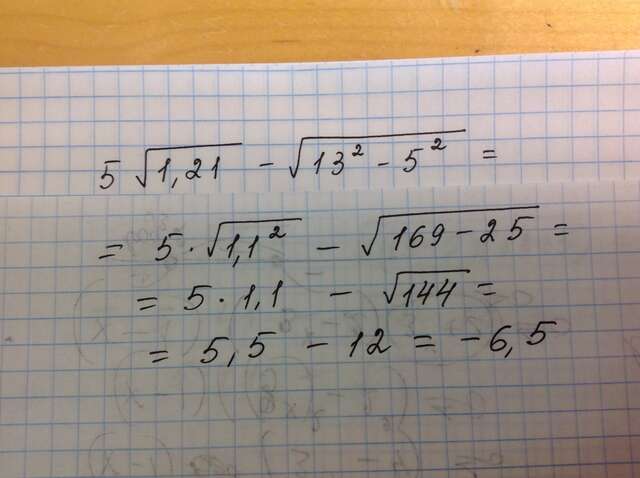 5 √1,21 - √13² - 5² =
= 5 · √1,1² - √169 - 25 =
= 5 · 1,1 - √144 =
= 5,5 - 12 = -6,5